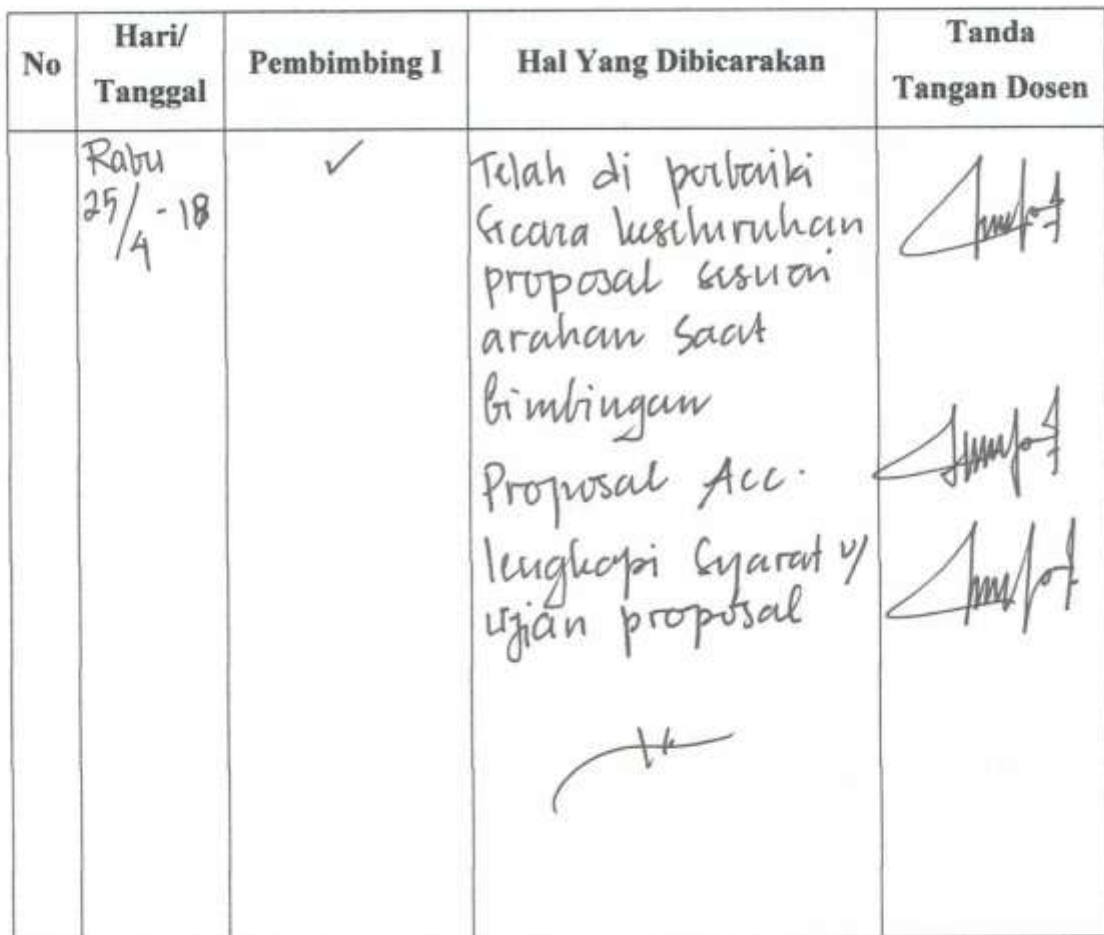 No
Hari/
Tanggal
Pembimbing I
Hal Yang Dibicarakan
Tanda
Tangan Dosen
Rabu
25/4 - 18
✓
Telah di perbaiki
secara keseluruhan
proposal sesuai
arahan saat
bimbingan
Proposal Acc.
lengkapi syarat u/
ujian proposal